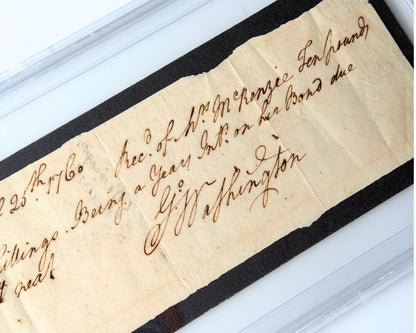 25th. 1760 Recd. of Mrs. McKenzie Ten pounds
Shillings. Being a Years Intt. on her Bond due
next
Go. Washington